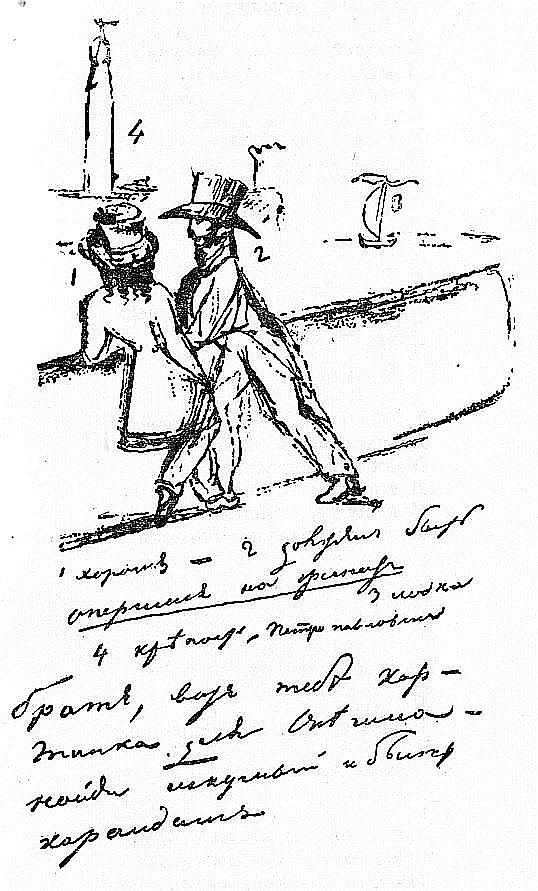 4
3
2
1
1 хорошъ — 2 долженъ быть
опершися на гранитъ
3 лодка
4 крѣпость, Петропавловская
Братъ, вотъ тебѣ кар-
тинка для Онѣгина -
найди искусный и быстрый
карандашъ